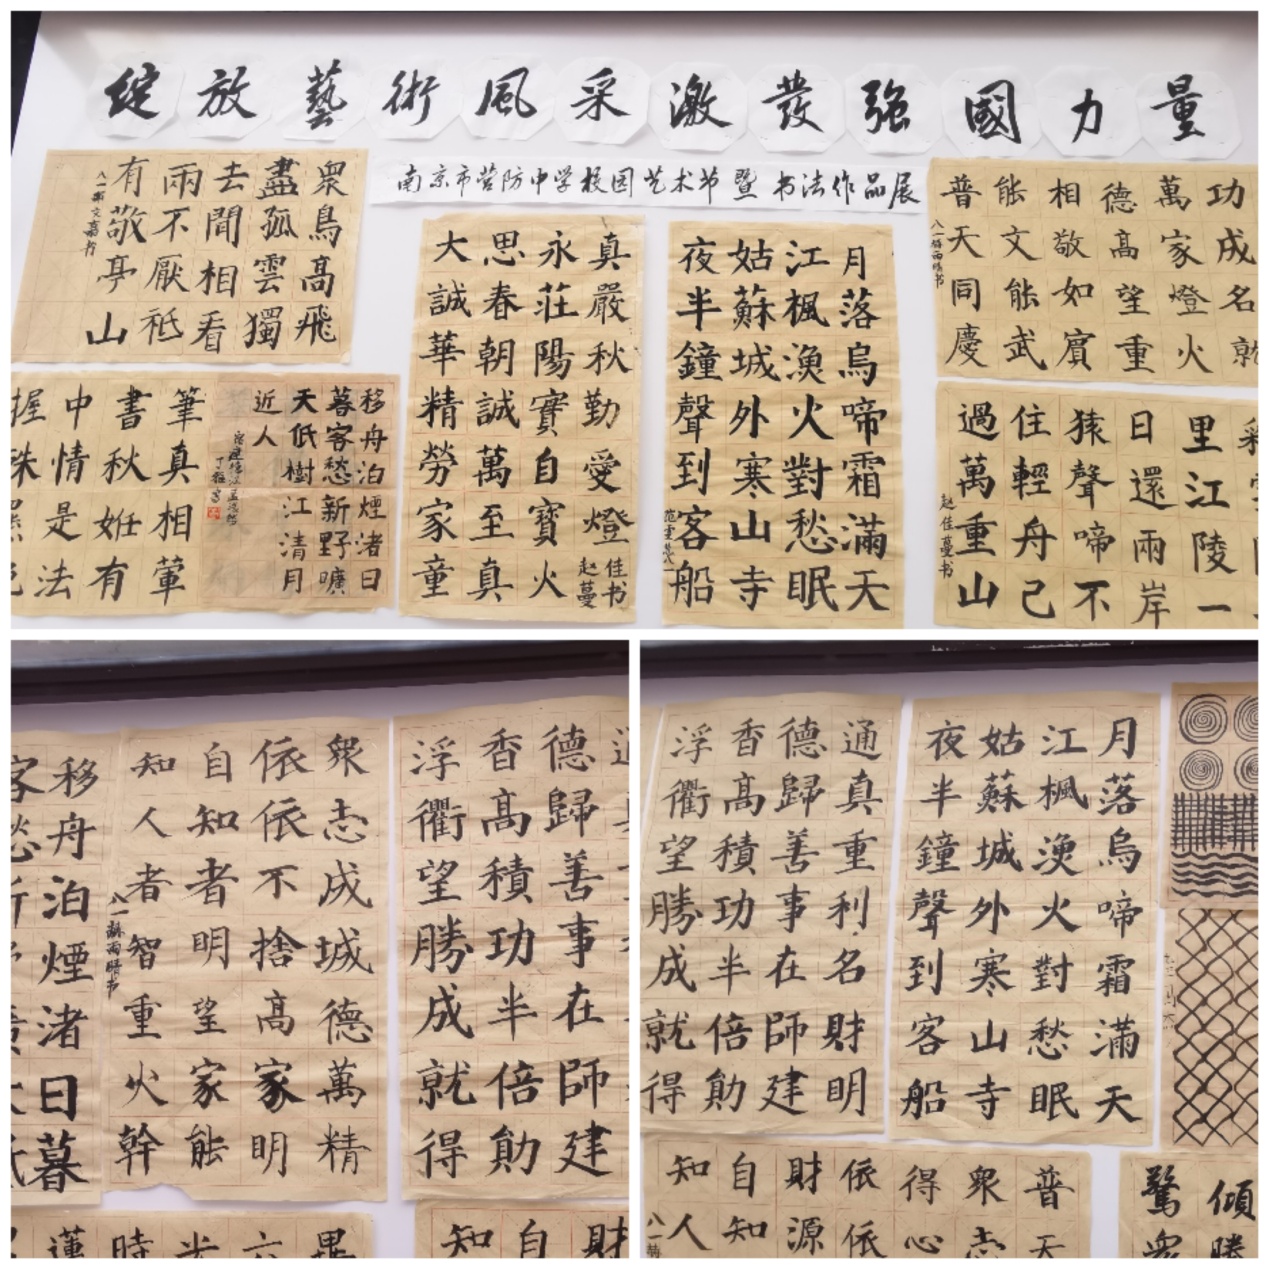 綻放藝術風采激發強國力量
南京市营防中学校园艺术节暨书法作品展
衆鳥高飛
盡孤雲獨
去閒相看
兩不厭祗
有敬亭山
筆真相葷
書秋姙有
中情是法
移舟泊煙渚日
暮客愁新野曠
天低樹江清月
近人
真嚴秋勤愛燈
永莊陽寶自寶火
思春朝誠萬至真
大誠華精勞家童
赵佳蔓书
月落烏啼霜滿天
江楓漁火對愁眠
姑蘇城外寒山寺
夜半鐘聲到客船
功成名就
萬家燈火
德高望重
相敬如賓
能文能武
普天同慶
里江陵一
日還兩岸
猿聲啼不
住輕舟己
過萬重山
赵佳蔓书
移舟泊煙渚日暮
衆志成城德萬精
依依不捨高家明
自知者明望家能
知人者智重火幹
德歸善事在師建
香高積功半倍勛
浮衢望勝成就得
知自財
通真重利名財明
德歸善事在師建
香高積功半倍勛
浮衢望勝成就得
月落烏啼霜滿天
江楓漁火對愁眠
姑蘇城外寒山寺
夜半鐘聲到客船
普天
衆志
得心
依依
財源
自知
知人
傾勝
驚